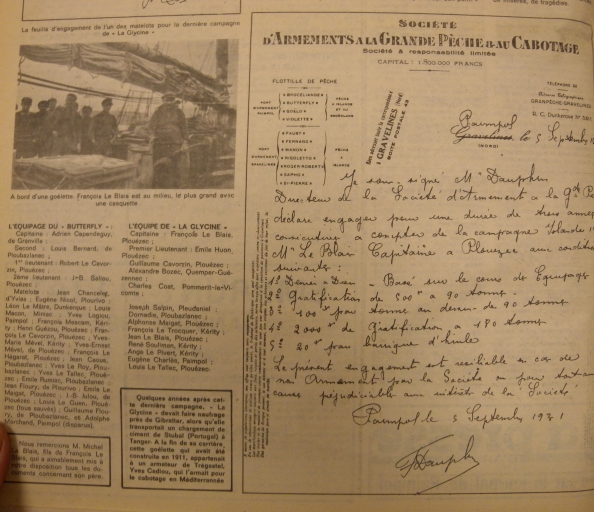 de misères, de tragédies.
La feuille d'engagement de l'un des matelots pour la dernière campagne
de « La Glycine »
A bord d'une goélette. François Le Blais est au milieu, le plus grand avec
une casquette
L'ÉQUIPAGE DU « BUTTERFLY » :
Capitaine : Adrien Capendeguy,
de Granville ;
Second : Louis Bernard, de
Ploubazlanec ;
1er lieutenant : Robert Le Cavor-
zin, Plouézec ;
2ème lieutenant : J-B. Saliou,
Plouézec ;
Matelots : Jean Chancelay,
d'Yvias ; Eugène Nicol, Plourivo ;
Léon Le Mâtre, Dunkerque ; Louis
Macon, Minian ; Yves Logiou,
Paimpol ; François Mescam, Kéri-
ty ; Henri Guézou, Plouézec ; Fran-
çois Le Cavorzin, Plouézec ; Yves-
Marie Mével, Kérity ; Yves-Ernest
Mével, de Plouézec ; François Le
Hagarat, Plouézec ; Jean Caous,
Ploubazlanec ; Yves Le Roy, Plou-
bazlanec ; Yves Le Tallec, Plouë-
zec ; Emile Rumiou, Ploubazlanec ;
Jean Floury, de Plourivo ; Emile Le
Magat, Plouézec ; J-B Julou, de
Plouézec ; Louis Le Guen, Ploué-
zec (tous sauvés) ; Guillaume Flou-
ry, de Ploubazlanec, et Adolphe
Marchand, Paimpol (disparus).
Nous remercions M. Michel
Le Blais, fils de François Le
Blais, qui a aimablement mis à
notre disposition tous les do-
cuments concernant son père.
L'ÉQUIPE DE « LA GLYCINE »
Capitaine : François Le Blais,
Plouézec ;
Premier Lieutenant : Emile Huon,
Plouézec ;
Guillaume Cavorzin, Plouézec ;
Alexandre Bozec, Quemper-Gué-
zennec ;
Charles Cost, Pommerit-le-Vi-
comte ;
Joseph Solpin, Pleudaniel
Domadis, Ploubazlanec ;
Alphonse Magat, Plouézec ;
François Le Trocquer, Kérity ;
Jean Le Blais, Plouézec ;
René Souliman, Kérity ;
Ange Le Pivert, Kérity ;
Eugène Charles, Paimpol ;
Louis Le Tallec, Plouézec
Quelques années après cet-
te dernière campagne, « La
Glycine » devait faire naufrage
près de Gibraltar, alors qu'elle
transportait un chargement de
ciment de Stubal (Portugal) à
Tanger. A la fin de sa carrière,
cette goélette qui avait été
construite en 1911, appartenait
à un armateur de Trégastel,
Yves Cadiou, qui l'armait pour
le cabotage en Méditerrannée
SOCIÉTÉ
D'ARMEMENTS A LA GRANDE PÊCHE & AU CABOTAGE
Société à responsabilité limitée
CAPITAL : 1.800.000 FRANCS
FLOTTILLE DE PÊCHE
PORT D'ARMEMENT PAIMPOL
« BROCELIANDE »
« BUTTERFLY »
« GOELO »
« VIOLETTE »
PÊCHE A ISLANDE ET AU GROENLAND
PORT D'ARMEMENT GRAVELINES
« FAUST »
« FERNAND »
« MANON »
« RIGOLETTO »
« ROZEN ROBERTE »
« SAPHO »
« ST-PIERRE »
PÊCHE A ISLANDE
Bien adresser toute la correspondance à
GRAVELINES (Nord)
BOITE POSTALE 49
TÉLÉPHONE
Adresse Télégraphique
GRANPÊCHE-GRAVELINES
R. C. Dunkerque N°
Paimpol
Gravelines, le 5 Septembre
(NORD)
Je sous-signé Mr Dauphin
Directeur de la Société d'Armement à la Gde Pêche
déclare engager pour une durée de trois années
consécutives à compter de la campagne Islande
Mr Le Blais Capitaine à Plouézec aux conditions
suivantes :
1° Denier-Dien - Basé sur le cours de Equipages
2° Gratification de 500f à 90 tonnes
3° 100f par tonne au dessus de 90 tonnes
4° 2000f de Gratification à 180 tonnes
5° 20f par barrique d'huile
Le présent engagement est résiliable en cas de
non Armement par la Société en pour toutes
causes préjudiciables aux intérêts de la Société
Paimpol le 5 Septembre 1931
Dauphin